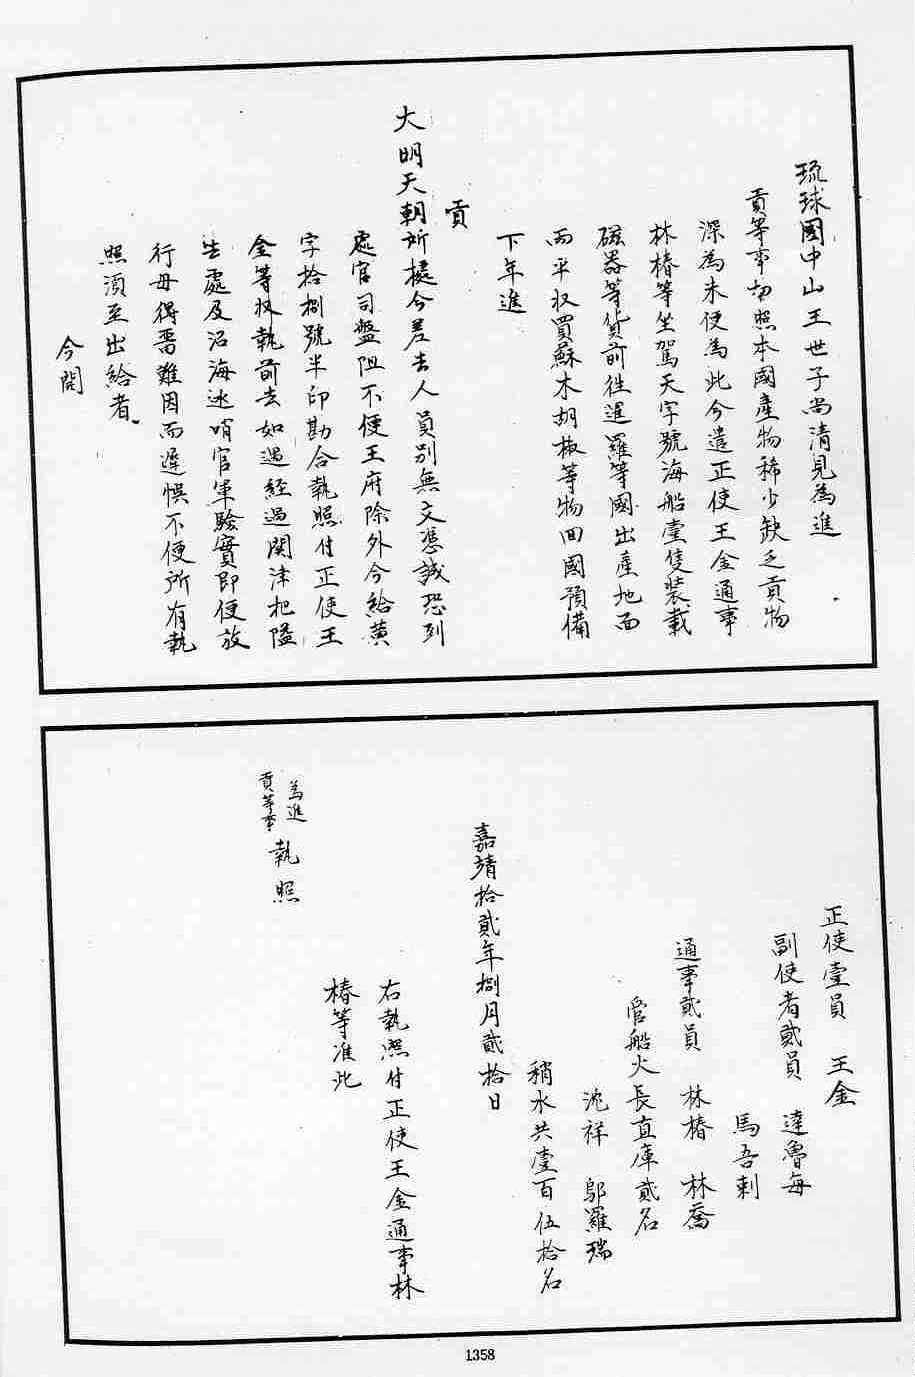 琉球國中山王世子尚清見為進
貢等事切照本國產物稀少缺乏貢物
深為未便為此今遣正使王金通事
林椿等坐駕天字號海船壹隻裝載
磁器等貨前徃暹羅等國出產地面
兩平收買蘇木胡椒等物回國預備
下年進
貢
大明天朝所據今差去人員別無文憑誠恐到
處官司盤阻不便王府除外今給黃
字拾捌號半印勘合執照付正使王
金等收執前去如遇經過関津把隘
去處及沿海巡哨官軍驗實即便放
行毋得留難因而遲悞不便所有執
照須至出給者
今開
正使壹員 王金
副使者貳員 達魯每
馬吾剌
通事貳員 林椿 林喬
管船火長直庫貳名
沈祥 鄔羅瑞
稍水共壹百伍拾名
嘉靖拾貳年捌月貳拾日
右執照付正使王金通事林
椿等准此
為進
貢等事 執照
1358